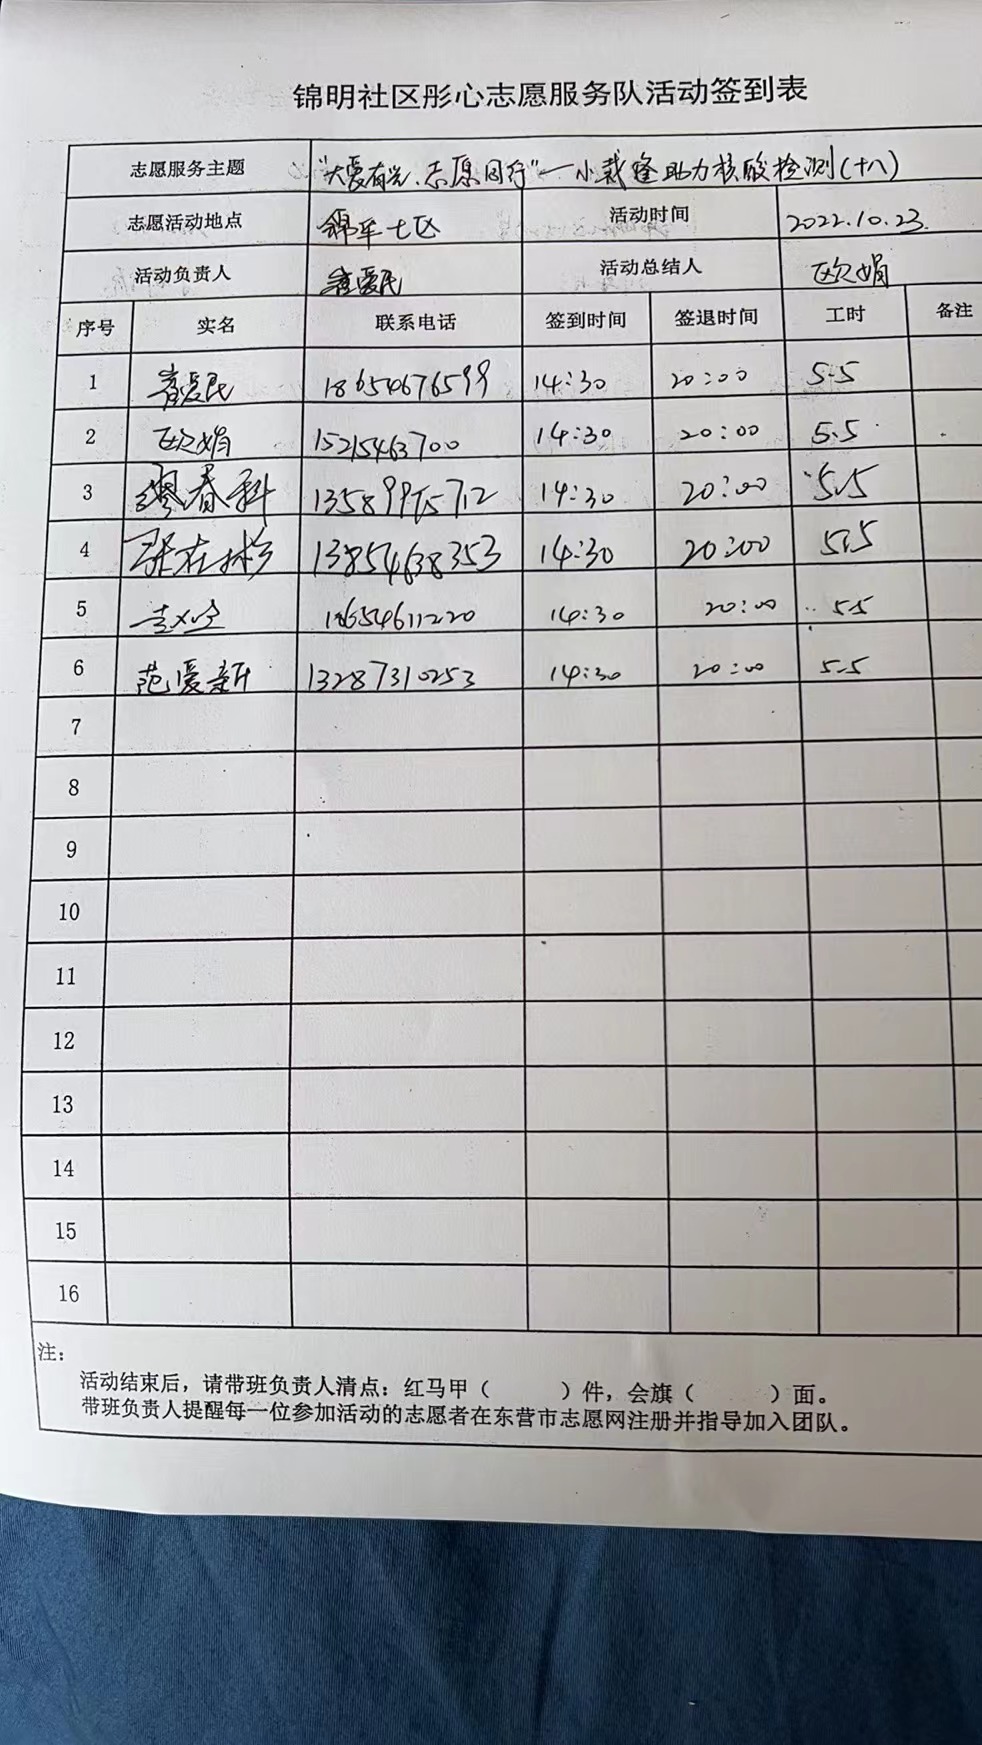 锦明社区彤心志愿服务队活动签到表
志愿服务主题 "大爱有光、志愿同行"—小裁缝助力核酸检测(十八)
志愿活动地点 锦华七区 活动时间 2022.10.23.
活动负责人 崔爱民 活动总结人 欧娟
序号 实名 联系电话 签到时间 签退时间 工时 备注
1 崔爱民 18654676599 14:30 20:00 5.5
2 欧娟 15215463700 14:30 20:00 5.5
3 春科 14:30 20:00 5.5
4 13854638353 14:30 20:00 5.5
5 18654611220 14:30 20:00 5.5
6 范爱新 13287310253 14:30 20:00 5.5
7
8
9
10
11
12
13
14
15
16
注：
活动结束后，请带班负责人清点：红马甲（ ）件，会旗（ ）面。
带班负责人提醒每一位参加活动的志愿者在东营市志愿网注册并指导加入团队。